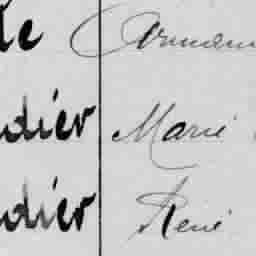 le Armand
dier Marie
dier René